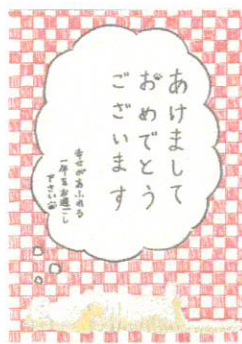 あけまして
おめでとう
ございます
幸せがあふれる
一年をお過ごし
下さい